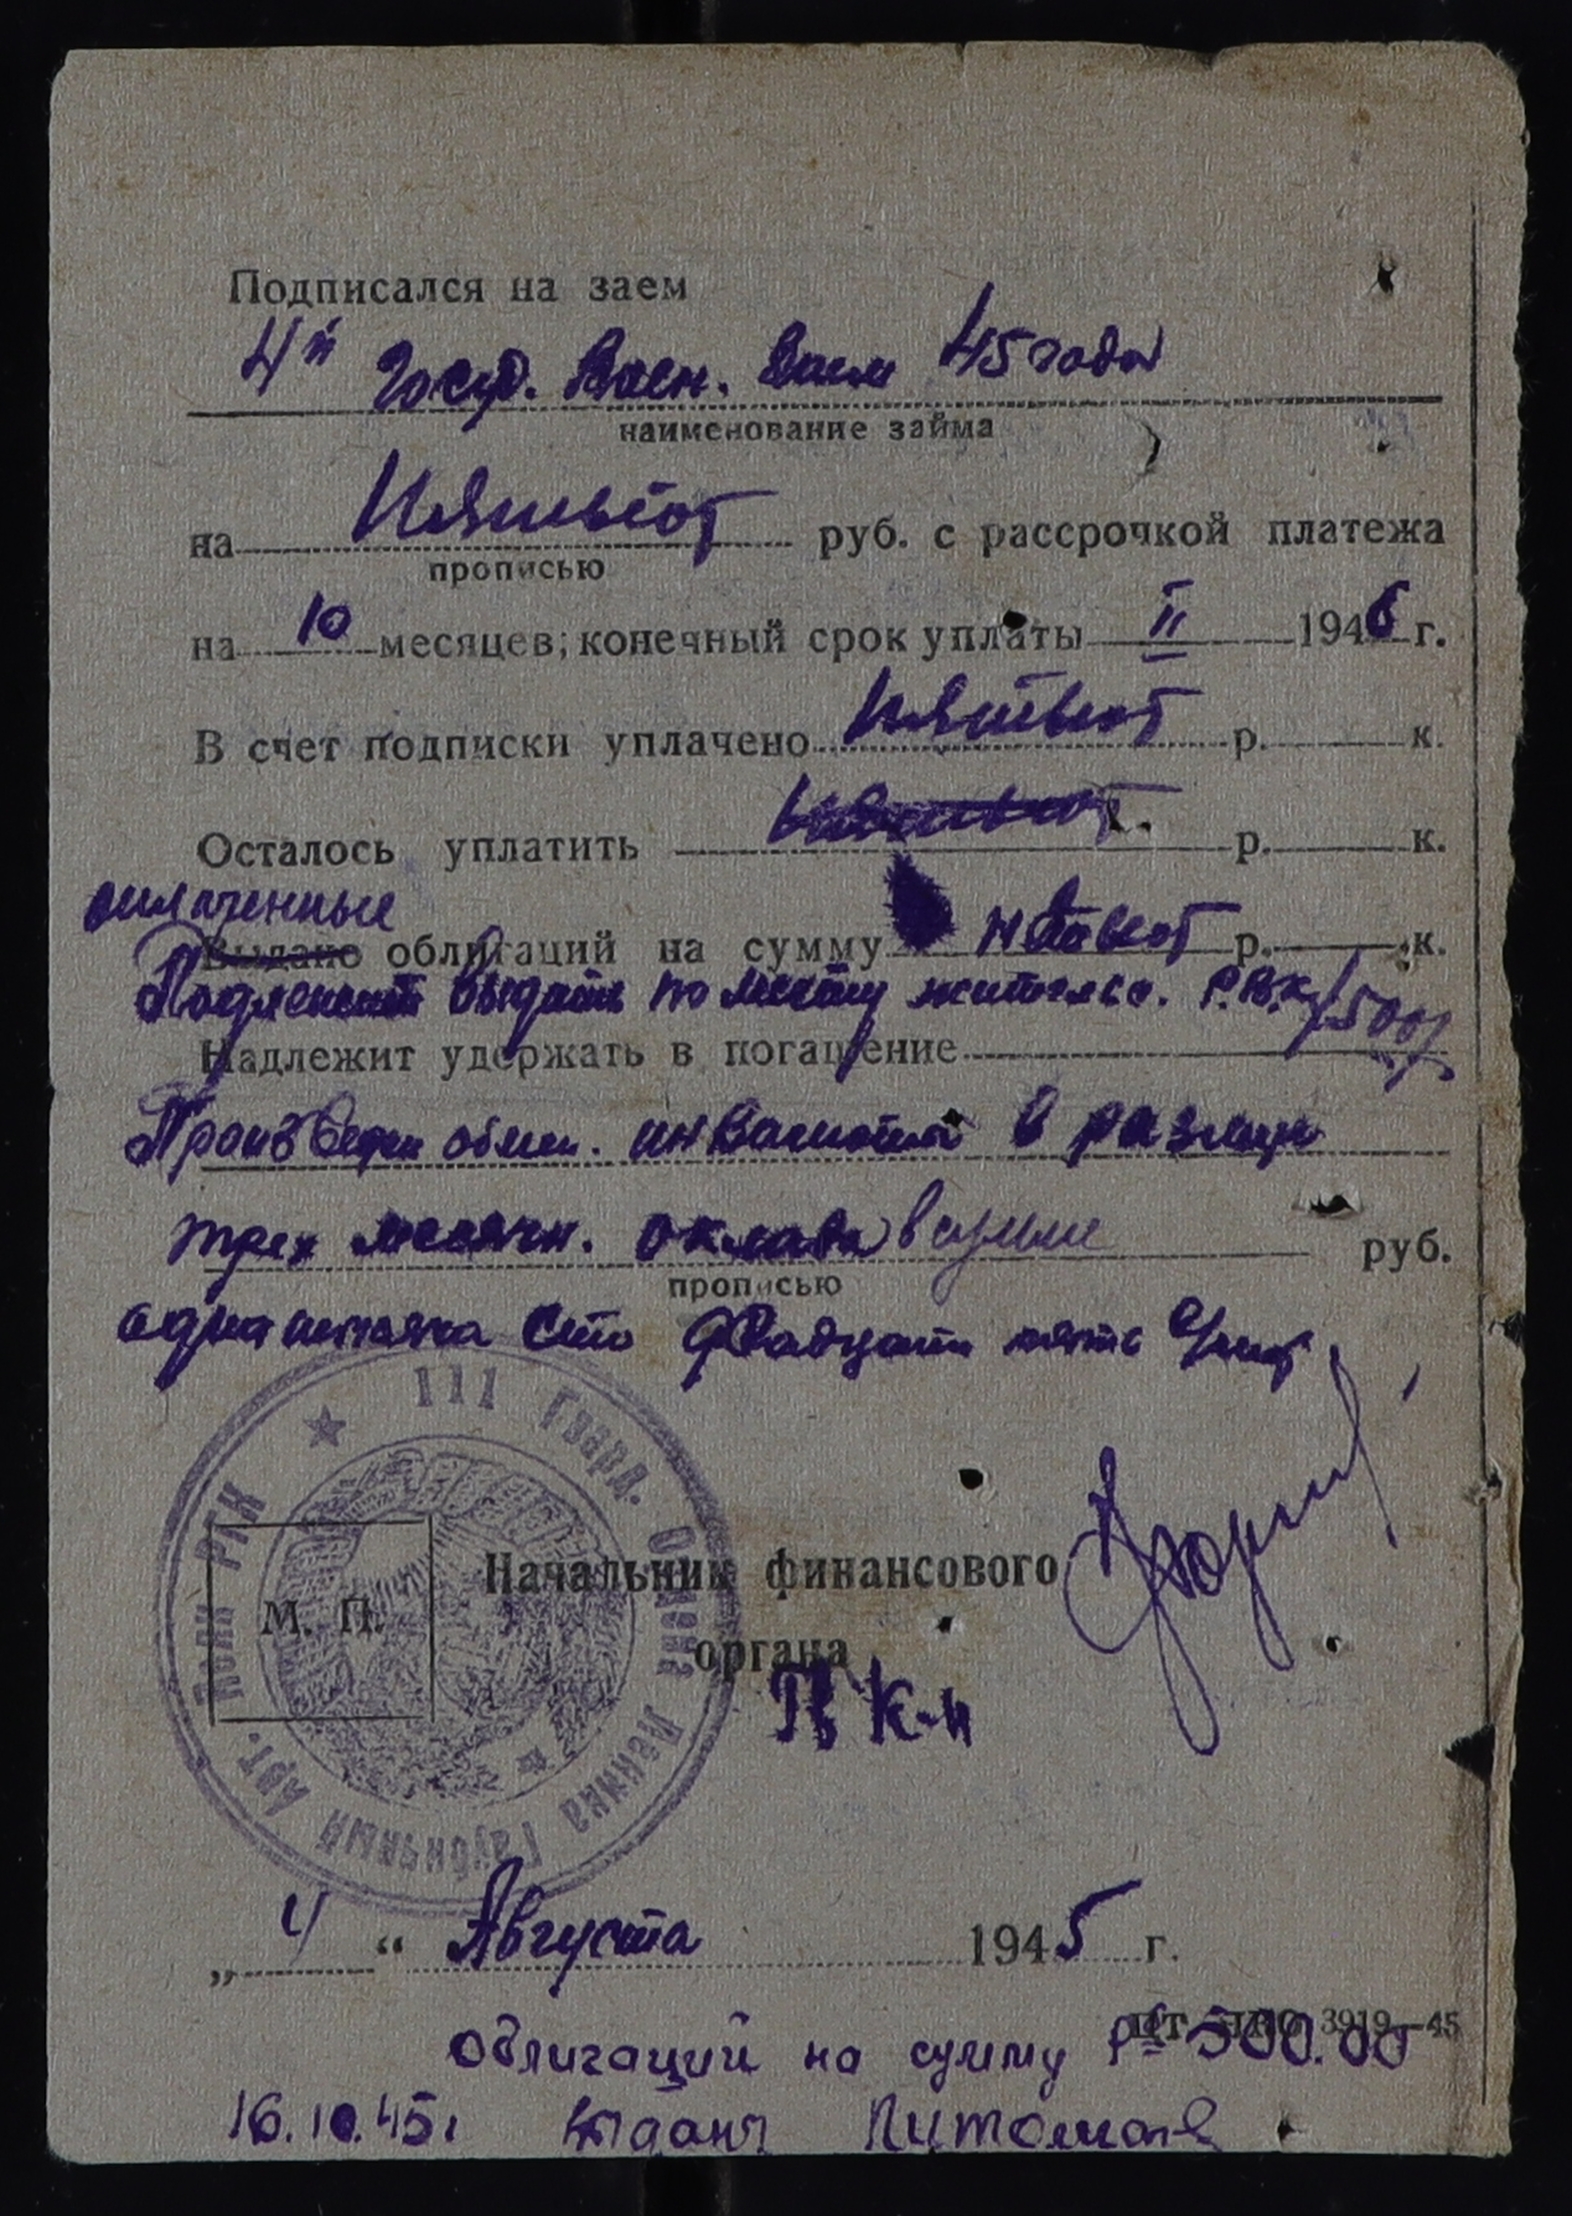 Подписался на заем
4й Госуд. Воен. Заем 45 года
наименование займа
на Пятьсот руб. с рассрочкой платежа
прописью
на 10 месяцев; конечный срок уплаты II 1946 г.
В счет подписки уплачено Пятьсот р. к.
Осталось уплатить р. к.
оплаченные
Выдано облигаций на сумму Пятьсот р. к.
Подлежат выдать по месту жительс. Р.В.К. /500
Надлежит удержать в погашение
Произведен обмен. инвалюты в размере
трех месячн. оклада в сумме руб.
прописью
одна тысяча сто двадцать пять
111 Гвард. Ордена Ленина Гаубичный Арт. Полк РГК
М. П.
Начальник финансового
органа
„4“ Августа 1945 г.
3919—45
облигаций на сумму Рб 500.00
16.10.45г